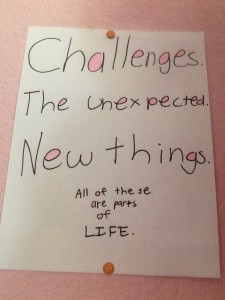 Challenges.
The unexpected.
New things.
All of these
are parts
of
LIFE.